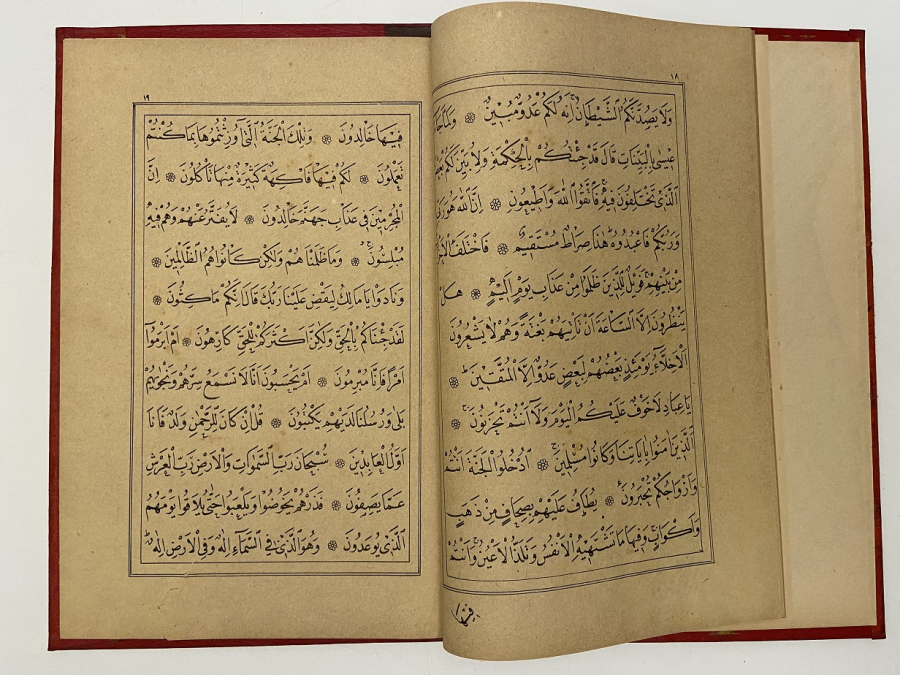 ١٨
وَلَا يَصُدَّنَّكُمُ الشَّيْطَانُ اِنَّهُ لَكُمْ عَدُوٌّ مُبٖينٌ ۞ وَلَمَّا جَاءَ
عٖيسٰى بِالْبَيِّنَاتِ قَالَ قَدْ جِئْتُكُمْ بِالْحِكْمَةِ وَلِاُبَيِّنَ لَكُمْ بَعْضَ
الَّذٖى تَخْتَلِفُونَ فٖيهِ فَاتَّقُوا اللّٰهَ وَاَطٖيعُونِ ۞ اِنَّ اللّٰهَ هُوَ رَبّٖى
وَرَبُّكُمْ فَاعْبُدُوهُ هٰذَا صِرَاطٌ مُسْتَقٖيمٌ ۞ فَاخْتَلَفَ الْاَحْزَابُ
مِنْ بَيْنِهِمْ فَوَيْلٌ لِلَّذٖينَ ظَلَمُوا مِنْ عَذَابِ يَوْمٍ اَلٖيمٍ ۞ هَلْ
يَنْظُرُونَ اِلَّا السَّاعَةَ اَنْ تَاْتِيَهُمْ بَغْتَةً وَهُمْ لَا يَشْعُرُونَ
اَلْاَخِلَّاءُ يَوْمَئِذٍ بَعْضُهُمْ لِبَعْضٍ عَدُوٌّ اِلَّا الْمُتَّقٖينَ ۞
يَا عِبَادِ لَا خَوْفٌ عَلَيْكُمُ الْيَوْمَ وَلَا اَنْتُمْ تَحْزَنُونَ ۞
اَلَّذٖينَ اٰمَنُوا بِاٰيَاتِنَا وَكَانُوا مُسْلِمٖينَ ۞ اُدْخُلُوا الْجَنَّةَ اَنْتُمْ
وَاَزْوَاجُكُمْ تُحْبَرُونَ ۞ يُطَافُ عَلَيْهِمْ بِصِحَافٍ مِنْ ذَهَبٍ
وَاَكْوَابٍ وَفٖيهَا مَا تَشْتَهٖيهِ الْاَنْفُسُ وَتَلَذُّ الْاَعْيُنُ وَاَنْتُمْ
فيها
١٩
فٖيهَا خَالِدُونَ ۞ وَتِلْكَ الْجَنَّةُ الَّتٖى اُورِثْتُمُوهَا بِمَا كُنْتُمْ
تَعْمَلُونَ ۞ لَكُمْ فٖيهَا فَاكِهَةٌ كَثٖيرَةٌ مِنْهَا تَاْكُلُونَ ۞ اِنَّ
الْمُجْرِمٖينَ فٖى عَذَابِ جَهَنَّمَ خَالِدُونَ ۞ لَا يُفَتَّرُ عَنْهُمْ وَهُمْ فٖيهِ
مُبْلِسُونَ ۞ وَمَا ظَلَمْنَاهُمْ وَلٰكِنْ كَانُوا هُمُ الظَّالِمٖينَ ۞
وَنَادَوْا يَا مَالِكُ لِيَقْضِ عَلَيْنَا رَبُّكَ قَالَ اِنَّكُمْ مَاكِثُونَ ۞
لَقَدْ جِئْنَاكُمْ بِالْحَقِّ وَلٰكِنَّ اَكْثَرَكُمْ لِلْحَقِّ كَارِهُونَ ۞ اَمْ اَبْرَمُوا
اَمْرًا فَاِنَّا مُبْرِمُونَ ۞ اَمْ يَحْسَبُونَ اَنَّا لَا نَسْمَعُ سِرَّهُمْ وَنَجْوٰيهُمْ
بَلٰى وَرُسُلُنَا لَدَيْهِمْ يَكْتُبُونَ ۞ قُلْ اِنْ كَانَ لِلرَّحْمٰنِ وَلَدٌ فَاَنَا
اَوَّلُ الْعَابِدٖينَ ۞ سُبْحَانَ رَبِّ السَّمٰوَاتِ وَالْاَرْضِ رَبِّ الْعَرْشِ
عَمَّا يَصِفُونَ ۞ فَذَرْهُمْ يَخُوضُوا وَيَلْعَبُوا حَتّٰى يُلَاقُوا يَوْمَهُمُ
الَّذٖى يُوعَدُونَ ۞ وَهُوَ الَّذٖى فِى السَّمَاءِ اِلٰهٌ وَفِى الْاَرْضِ اِلٰهٌ